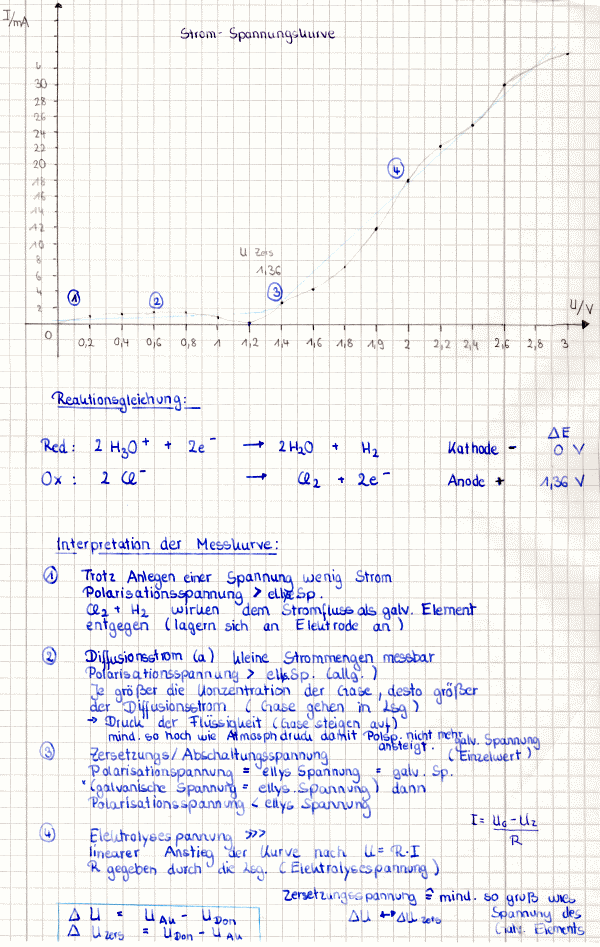 I/mA
Strom-Spannungskurve
6
30
28
26
24
22
20
18
16
14
12
10
8
6
4
2
0
④
U Zers
1,36
① ② ③
U/V
0,2 0,4 0,6 0,8 1 1,2 1,4 1,6 1,8 1,9 2 2,2 2,4 2,6 2,8 3
Reaktionsgleichung:
ΔE
Red: 2 H₃O⁺ + 2e⁻ → 2H₂O + H₂ Kathode - 0 V
Ox: 2 Cl⁻ → Cl₂ + 2e⁻ Anode + 1,36 V
Interpretation der Messkurve:
① Trotz Anlegen einer Spannung wenig Strom
Polarisationsspannung > Sp.
Cl₂ + H₂ wirken dem Stromfluss als galv. Element
entgegen (lagern sich an Elektrode an)
② Diffusionsstrom (a) kleine Strommengen messbar
Polarisationsspannung > Sp. (allg.)
Je größer die Konzentration der Gase, desto größer
der Diffusionsstrom (Gase gehen in Lsg)
→ Druck der Flüssigkeit (Gase steigen auf)
mind. so hoch wie Atmosphdruck damit Polsp. nicht mehr
ansteigt.
③ Zersetzungs/Abschaltungsspannung
galv. Spannung
(Einzelwert)
Polarisationspannung = ellys Spannung = galv. Sp.
(galvanische Spannung = ellys. Spannung) dann
Polarisationsspannung < ellys Spannung
④ Elektrolysespannung >>>
linearer Anstieg der Kurve nach U = R·I
R gegeben durch die Lsg. (Elektrolysespannung)
I = U₀ - U_z
R
Zersetzungsspannung ≙ mind. so groß wies
Spannung des
Galv. Elements
ΔU ↔ ΔU zers
Δ U = U An - U Don
Δ U zers = U Don - U Au